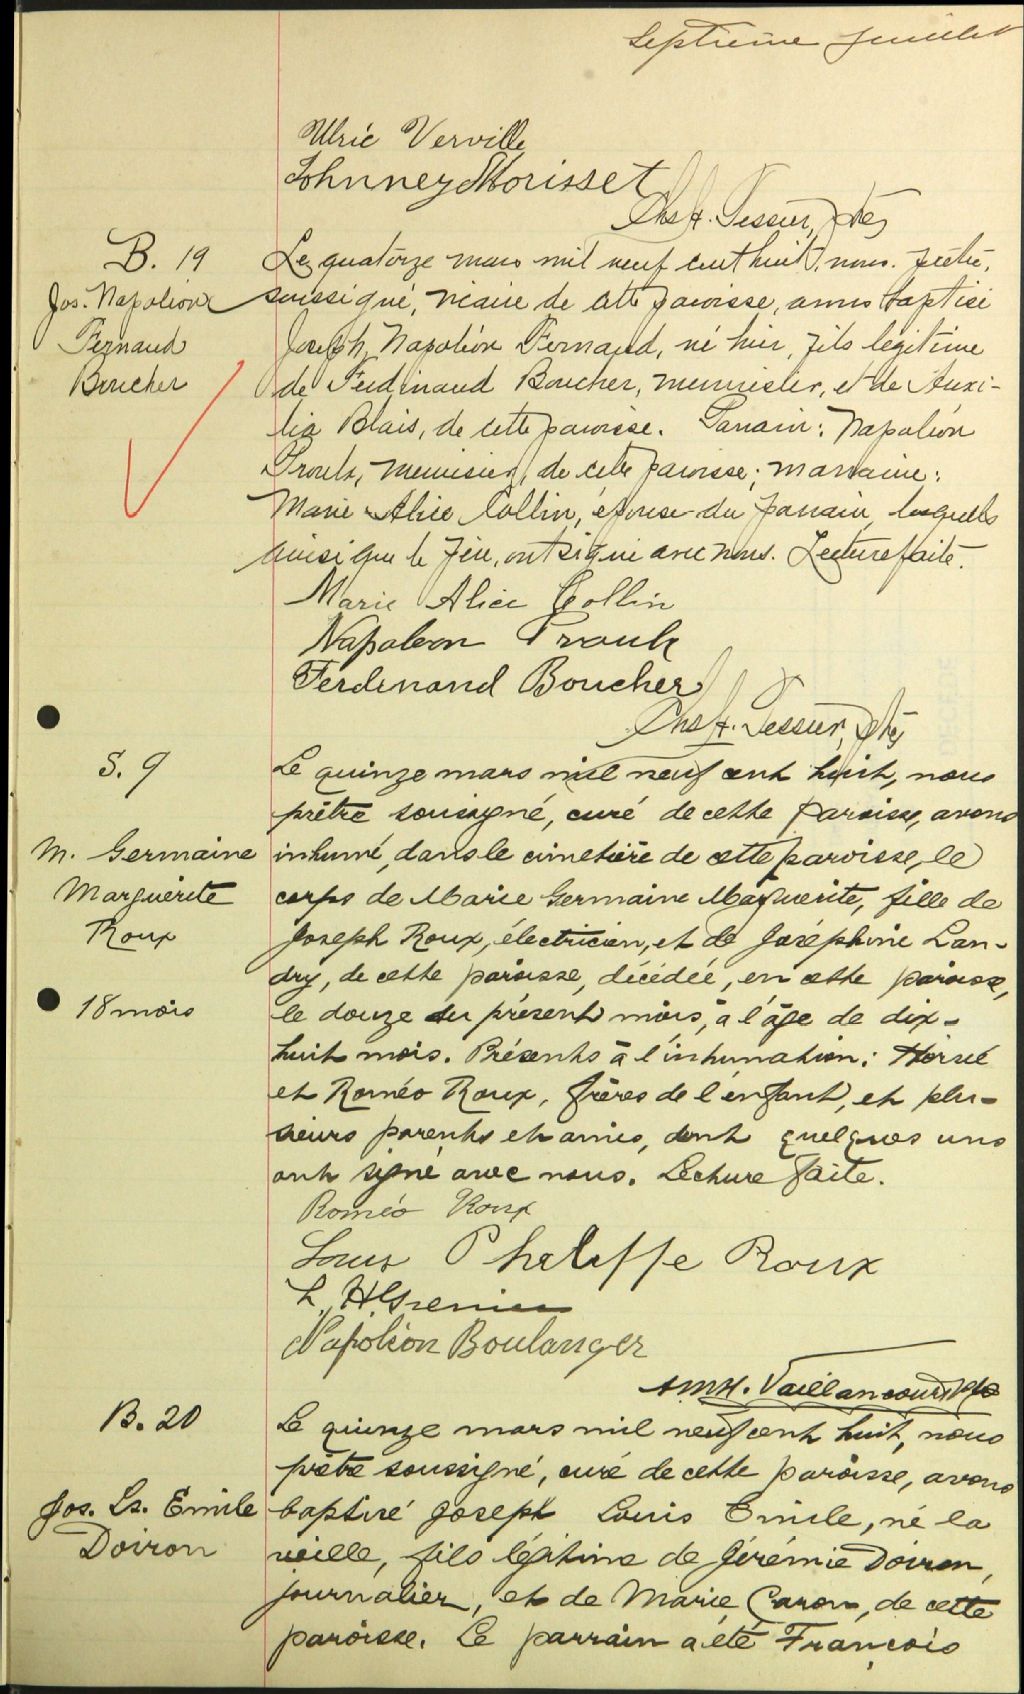 Septième feuillet
Ulric Verville
Johnney Morisset
Chs A. Tessier, ptre
B. 19
Jos. Napoléon
Fernand
Boucher
Le quatorze mars mil neuf cent huit, nous, prêtre,
soussigné, vicaire de cette paroisse, avons baptisé
Joseph Napoléon Fernand, né hier, fils légitime
de Ferdinand Boucher, menuisier, et de Auxi-
lia Blais, de cette paroisse. Parrain: Napoléon
Proulx, menuisier, de cette paroisse; marraine:
Marie Alice Collin, épouse du parrain, lesquels
ainsi que le père, ont signé avec nous. Lecture faite.
Marie Alice Collin
Napoleon Proulx
Ferdinand Boucher
Chs A. Tessier, ptre
S. 9
M. Germaine
Marguerite
Roux
18 mois
Le quinze mars mil neuf cent huit, nous
prêtre soussigné, curé de cette paroisse, avons
inhumé, dans le cimetière de cette paroisse, le
corps de Marie Germaine Marguerite, fille de
Joseph Roux, électricien, et de Joséphine Lan-
dry, de cette paroisse, décédée, en cette paroisse,
le douze du présent mois, à l'âge de dix-
huit mois. Présents à l'inhumation: Hervé
et Roméo Roux, frères de l'enfant, et plu-
sieurs parents et amis, dont quelques uns
ont signé avec nous. Lecture faite.
Roméo Roux
Louis Philippe Roux
L. H. Grenier
Napoléon Boulanger
Vaillancourt ptre
B. 20
Jos. Ls. Emile
Doiron
Le quinze mars mil neuf cent huit, nous
prêtre soussigné, curé de cette paroisse, avons
baptisé Joseph Louis Emile, né la
veille, fils légitime de Jérémie Doiron,
journalier, et de Marie Caron, de cette
paroisse. Le parrain a été François